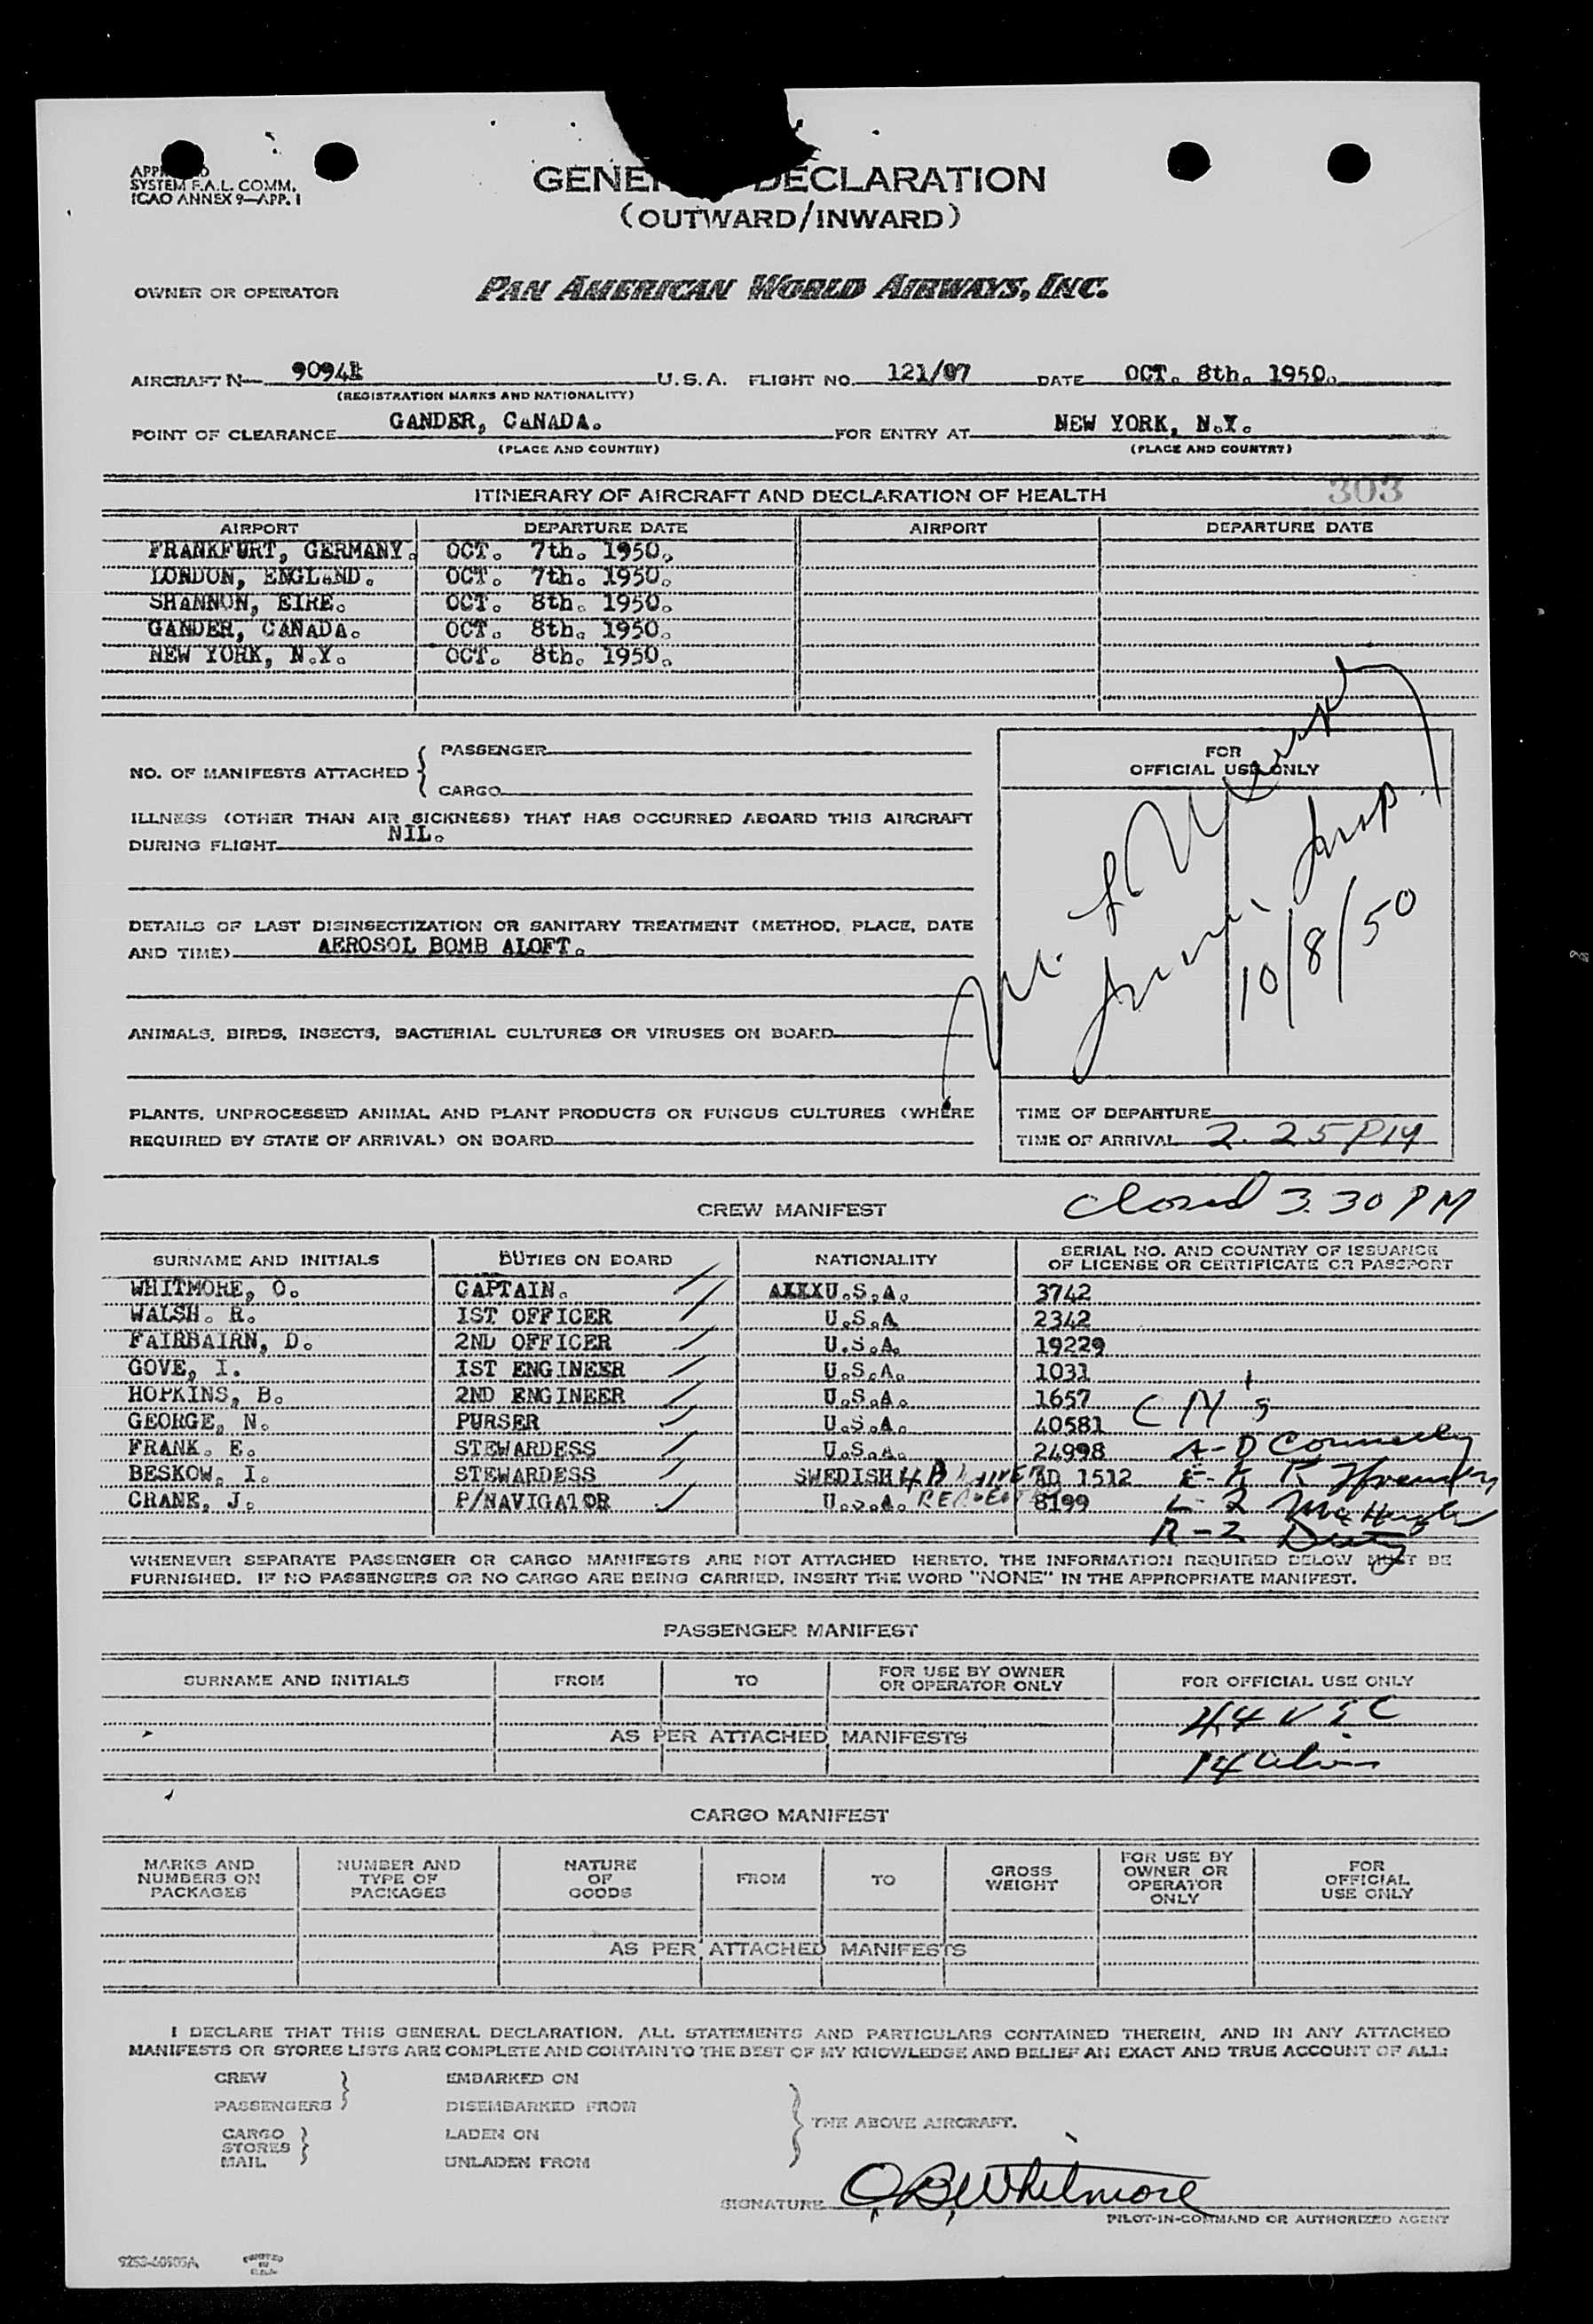 SYSTEM F.A.L. COMM.
ICAO ANNEX 9—APP. I
GENE DECLARATION
(OUTWARD/INWARD)
OWNER OR OPERATOR PAN AMERICAN WORLD AIRWAYS, INC.
AIRCRAFT N— U.S.A. FLIGHT NO. 121/07 DATE OCT. 8th. 1950.
(REGISTRATION MARKS AND NATIONALITY)
POINT OF CLEARANCE GANDER, CANADA. FOR ENTRY AT NEW YORK, N.Y.
(PLACE AND COUNTRY) (PLACE AND COUNTRY)
ITINERARY OF AIRCRAFT AND DECLARATION OF HEALTH 303
AIRPORT DEPARTURE DATE AIRPORT DEPARTURE DATE
FRANKFURT, GERMANY. OCT. 7th. 1950.
LONDON, ENGLAND. OCT. 7th. 1950.
SHANNON, EIRE. OCT. 8th. 1950.
GANDER, CANADA. OCT. 8th. 1950.
NEW YORK, N.Y. OCT. 8th. 1950.
NO. OF MANIFESTS ATTACHED { PASSENGER
CARGO
FOR
OFFICIAL USE ONLY
ILLNESS (OTHER THAN AIR SICKNESS) THAT HAS OCCURRED ABOARD THIS AIRCRAFT
DURING FLIGHT NIL.
Insp.
10/8/50
DETAILS OF LAST DISINSECTIZATION OR SANITARY TREATMENT (METHOD, PLACE, DATE
AND TIME) AEROSOL BOMB ALOFT.
ANIMALS, BIRDS, INSECTS, BACTERIAL CULTURES OR VIRUSES ON BOARD
PLANTS, UNPROCESSED ANIMAL AND PLANT PRODUCTS OR FUNGUS CULTURES (WHERE
REQUIRED BY STATE OF ARRIVAL) ON BOARD
TIME OF DEPARTURE
TIME OF ARRIVAL 2.25 PM
Closed 3.30 PM
CREW MANIFEST
SURNAME AND INITIALS DUTIES ON BOARD NATIONALITY SERIAL NO. AND COUNTRY OF ISSUANCE
OF LICENSE OR CERTIFICATE OR PASSPORT
WHITMORE, O. CAPTAIN. AXXXU.S.A. 3742
WALSH. R. 1ST OFFICER U.S.A 2342
FAIRBAIRN, D. 2ND OFFICER U.S.A. 19229
GOVE, I. 1ST ENGINEER U.S.A. 1031
HOPKINS, B. 2ND ENGINEER U.S.A. 1657
GEORGE, N. PURSER U.S.A. 40581
FRANK. E. STEWARDESS U.S.A. 24998 A-D Connelly
BESKOW, I. STEWARDESS SWEDISH AD 1512
CRANE, J. P/NAVIGATOR U.S.A. 8199
WHENEVER SEPARATE PASSENGER OR CARGO MANIFESTS ARE NOT ATTACHED HERETO, THE INFORMATION REQUIRED BELOW MUST BE
FURNISHED. IF NO PASSENGERS OR NO CARGO ARE BEING CARRIED, INSERT THE WORD "NONE" IN THE APPROPRIATE MANIFEST.
PASSENGER MANIFEST
SURNAME AND INITIALS FROM TO FOR USE BY OWNER
OR OPERATOR ONLY FOR OFFICIAL USE ONLY
AS PER ATTACHED MANIFESTS
CARGO MANIFEST
MARKS AND
NUMBERS ON
PACKAGES
NUMBER AND
TYPE OF
PACKAGES
NATURE
OF
GOODS
FROM
TO
GROSS
WEIGHT
FOR USE BY
OWNER OR
OPERATOR
ONLY
FOR
OFFICIAL
USE ONLY
AS PER ATTACHED MANIFESTS
I DECLARE THAT THIS GENERAL DECLARATION, ALL STATEMENTS AND PARTICULARS CONTAINED THEREIN, AND IN ANY ATTACHED
MANIFESTS OR STORES LISTS ARE COMPLETE AND CONTAIN TO THE BEST OF MY KNOWLEDGE AND BELIEF AN EXACT AND TRUE ACCOUNT OF ALL:
CREW EMBARKED ON
PASSENGERS DISEMBARKED FROM
THE ABOVE AIRCRAFT.
CARGO LADEN ON
STORES
MAIL UNLADEN FROM
SIGNATURE O.B. Whitmore
PILOT-IN-COMMAND OR AUTHORIZED AGENT
PRINTED
IN
U.S.A.